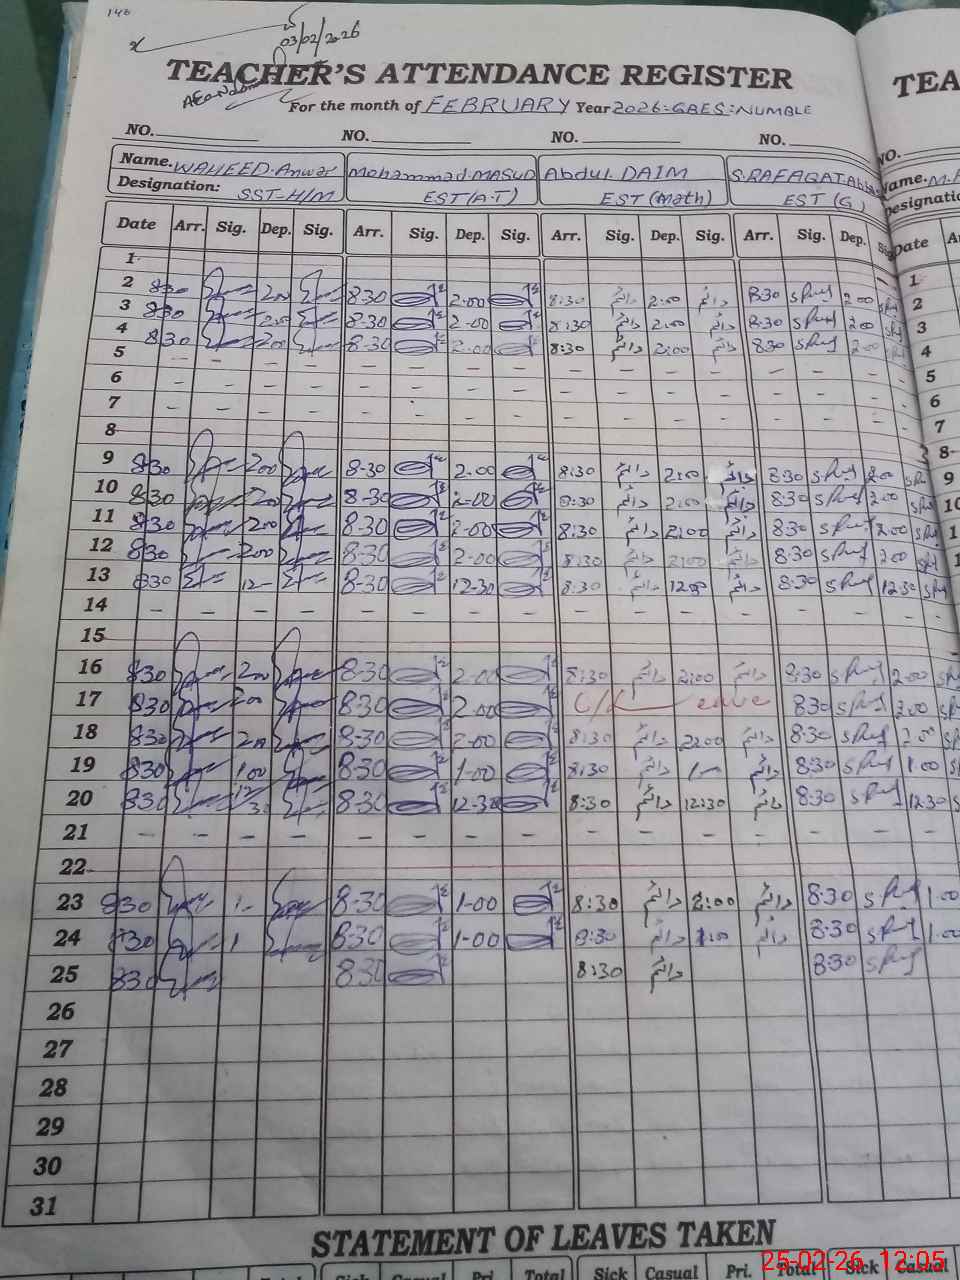 146
03/02/2026
TEACHER'S ATTENDANCE REGISTER
For the month of FEBRUARY Year 2026 GBES: NUMBLE
NO. NO. NO. NO.
Name. WAHEED Anwar Mohammad MASUD Abdul DAIM S. RAFAQAT Abbas
Designation: SST-H/M EST (A.T) EST (Math) EST (G)
Date Arr. Sig. Dep. Sig. Arr. Sig. Dep. Sig. Arr. Sig. Dep. Sig. Arr. Sig. Dep. Sig
1
2 830 200 8-30 2.00 8:30 دائم 2:00 دائم 830 200
3 830 200 8-30 2-00 8:30 دائم 2:00 دائم 8-30 200
4 830 200 8-30 2-00 8:30 دائم 2:00 دائم 830 200
5 – – – – – – – – – – – – – – –
6 – – – – – – – – – – – – – – –
7 – – – – – – – – – – – – – – –
8
9 830 200 8-30 2.00 8:30 دائم 2:00 دائم 830 200
10 830 200 8-30 2-00 8:30 دائم 2:00 دائم 8:30 200
11 830 200 8-30 2-00 8:30 دائم 2:00 دائم 830 200
12 830 200 8-30 2-00 8:30 دائم 2:00 دائم 8:30 200
13 830 12- 8-30 12-30 8:30 دائم 12:30 دائم 8:30 12.30
14 – – – – – – – – – – – – – – –
15
16 830 200 8-30 2-00 8:30 دائم 2:00 دائم 8:30 2.00
17 830 200 8-30 2-00 C/L Leave 830 200
18 830 200 8-30 2-00 8:30 دائم 2:00 دائم 8:30 2.00
19 830 1.00 8-30 1-00 8:30 دائم 1– دائم 8:30 1.00
20 830 12/30 8-30 12-30 8:30 دائم 12:30 دائم 8:30 12.30
21 – – – – – – – – – – – – – – –
22
23 830 1- 8-30 1-00 8:30 دائم 2:00 دائم 8.30 1.00
24 830 1 8-30 1-00 8:30 دائم 1:00 دائم 8.30 1.00
25 830 8-30 8:30 دائم 830
26
27
28
29
30
31
STATEMENT OF LEAVES TAKEN
Sick Casual Pri. Total Sick Casual Pri. Total Sick Casual
25-02-26 12:05
TEA
NO.
Name. M.
Date
1
2
3
4
5
6
7
8
9
10